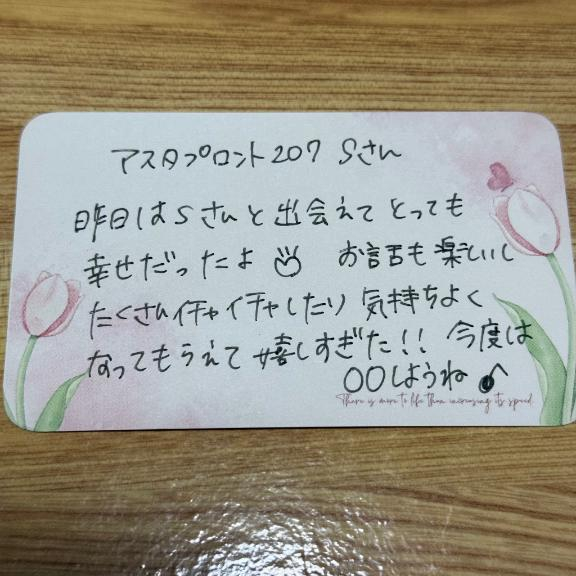 アスタプロント207 Sさん
昨日はSさんと出会えてとっても
幸せだったよ お話も楽しいし
たくさんイチャイチャしたり 気持ちよく
なってもらえて嬉しすぎた!! 今度は
〇〇しようね♪
There is more to life than increasing its speed.